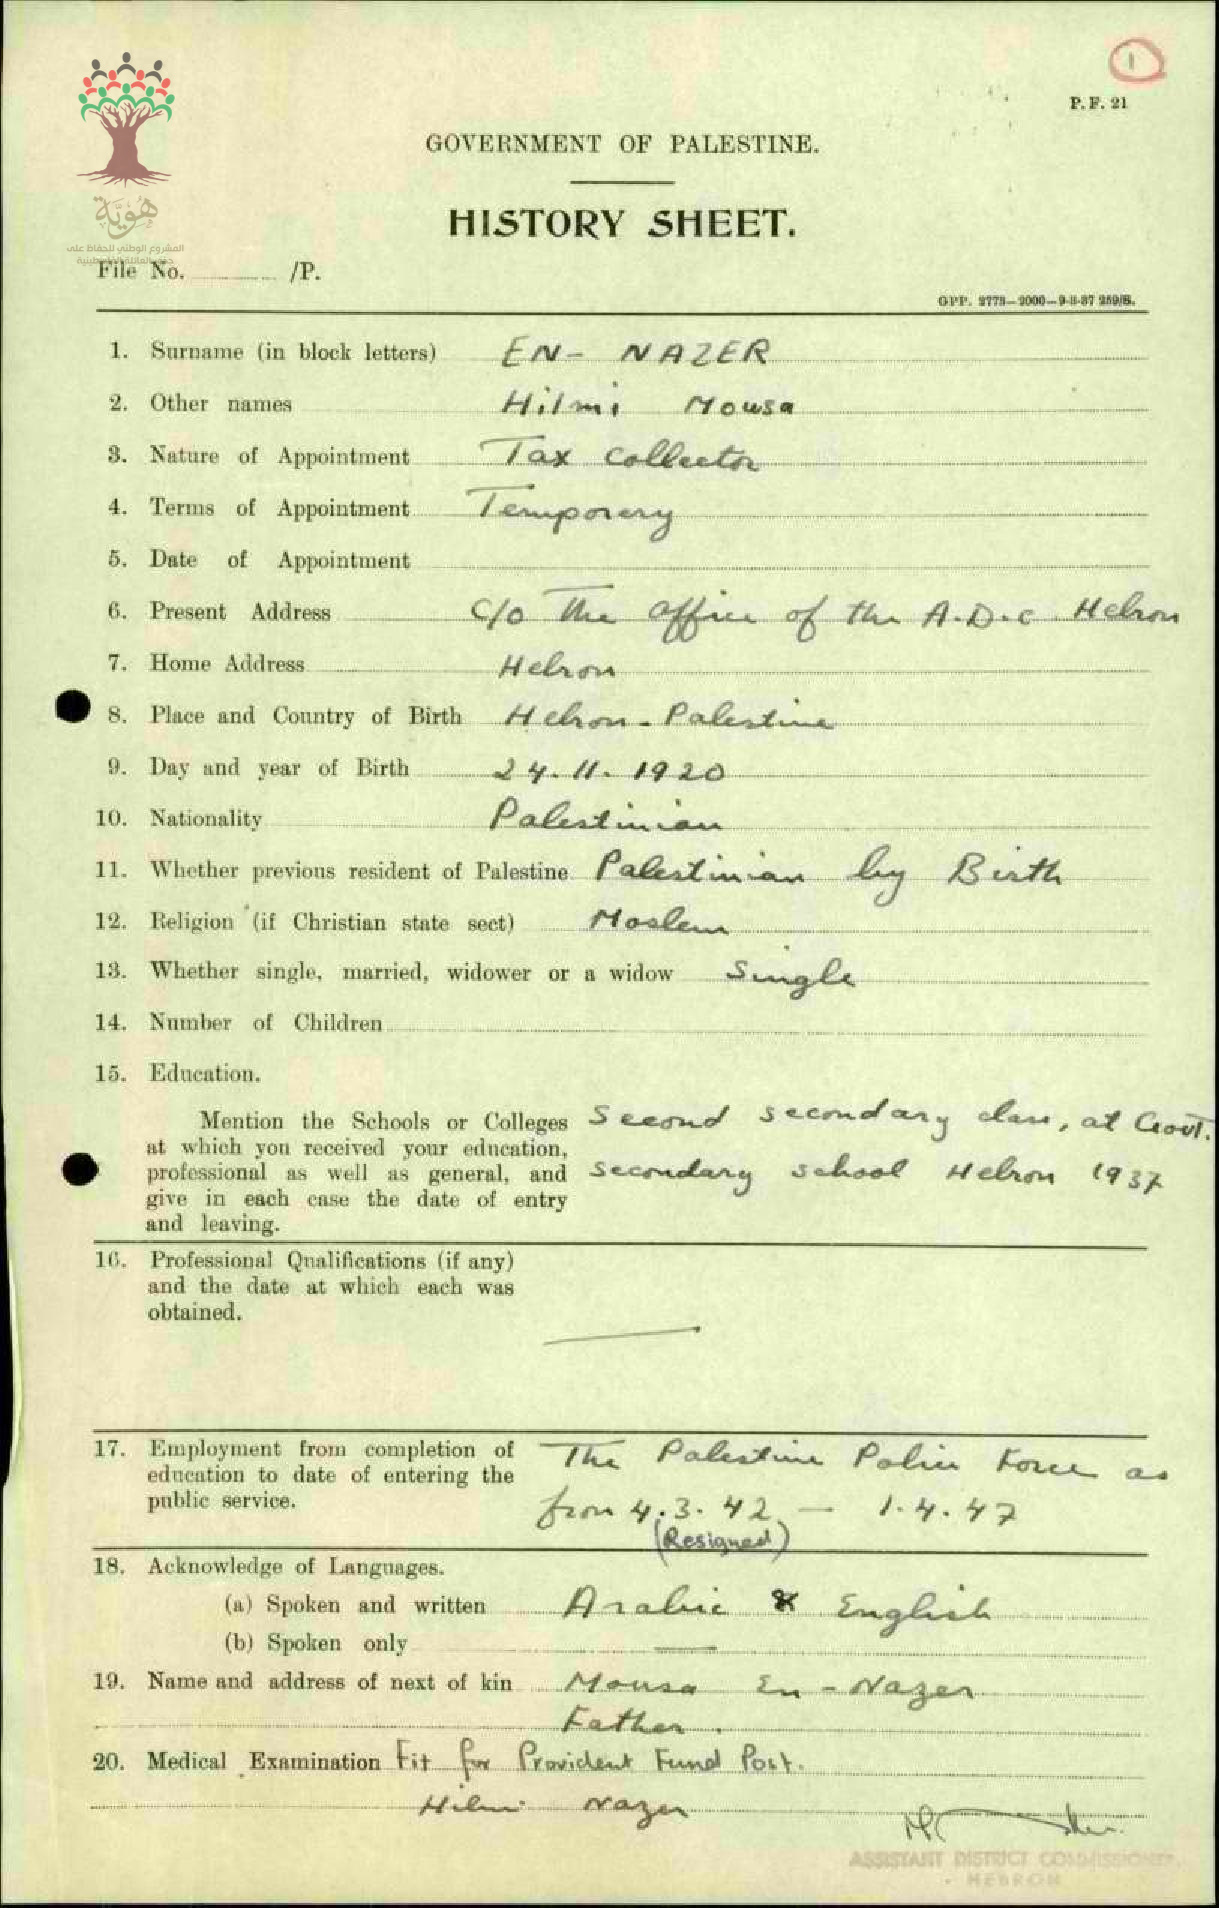 1
P. F. 21
GOVERNMENT OF PALESTINE.
HISTORY SHEET.
هُوِيَّة
المشروع الوطني للحفاظ على
جذور العائلة الفلسطينية
File No. /P.
GPP. 2773—2000—9-3-37 259/S.
1. Surname (in block letters) EN- NAZER
2. Other names Hilmi Mousa
3. Nature of Appointment Tax collector
4. Terms of Appointment Temporary
5. Date of Appointment
6. Present Address C/O The office of the A.D.C. Hebron
7. Home Address Hebron
8. Place and Country of Birth Hebron - Palestine
9. Day and year of Birth 24.11.1920
10. Nationality Palestinian
11. Whether previous resident of Palestine Palestinian by Birth
12. Religion (if Christian state sect) Moslem
13. Whether single, married, widower or a widow Single
14. Number of Children
15. Education.
Mention the Schools or Colleges Second secondary class, at Govt.
at which you received your education,
professional as well as general, and secondary school Hebron 1937
give in each case the date of entry
and leaving.
16. Professional Qualifications (if any)
and the date at which each was
obtained.
17. Employment from completion of The Palestine Police Force as
education to date of entering the
public service. from 4.3.42 — 1.4.47
(Resigned)
18. Acknowledge of Languages.
(a) Spoken and written Arabic & English
(b) Spoken only —
19. Name and address of next of kin Mousa En-Nazer
Father.
20. Medical Examination Fit for Provident Fund Post.
Hilmi Nazer
ASSISTANT DISTRICT COMMISSIONER,
HEBRON